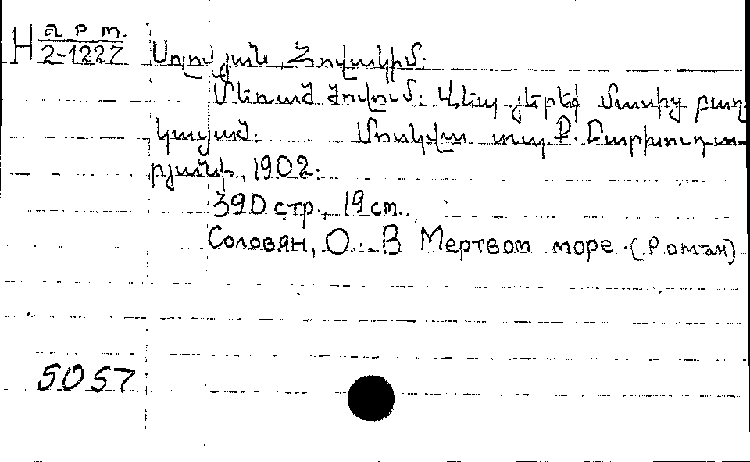 Н арт.
2-1227 Սոլովյան, Հովակիմ.
Մեռած ծովում: Վեպ յերեք մասից բաղ
կացած. Մոսկվա տպ. Բարխուդա-
րյանի, 1902.
390 стр., 19 cm.
Соловян, О. В Мертвом море (Роман)
5057